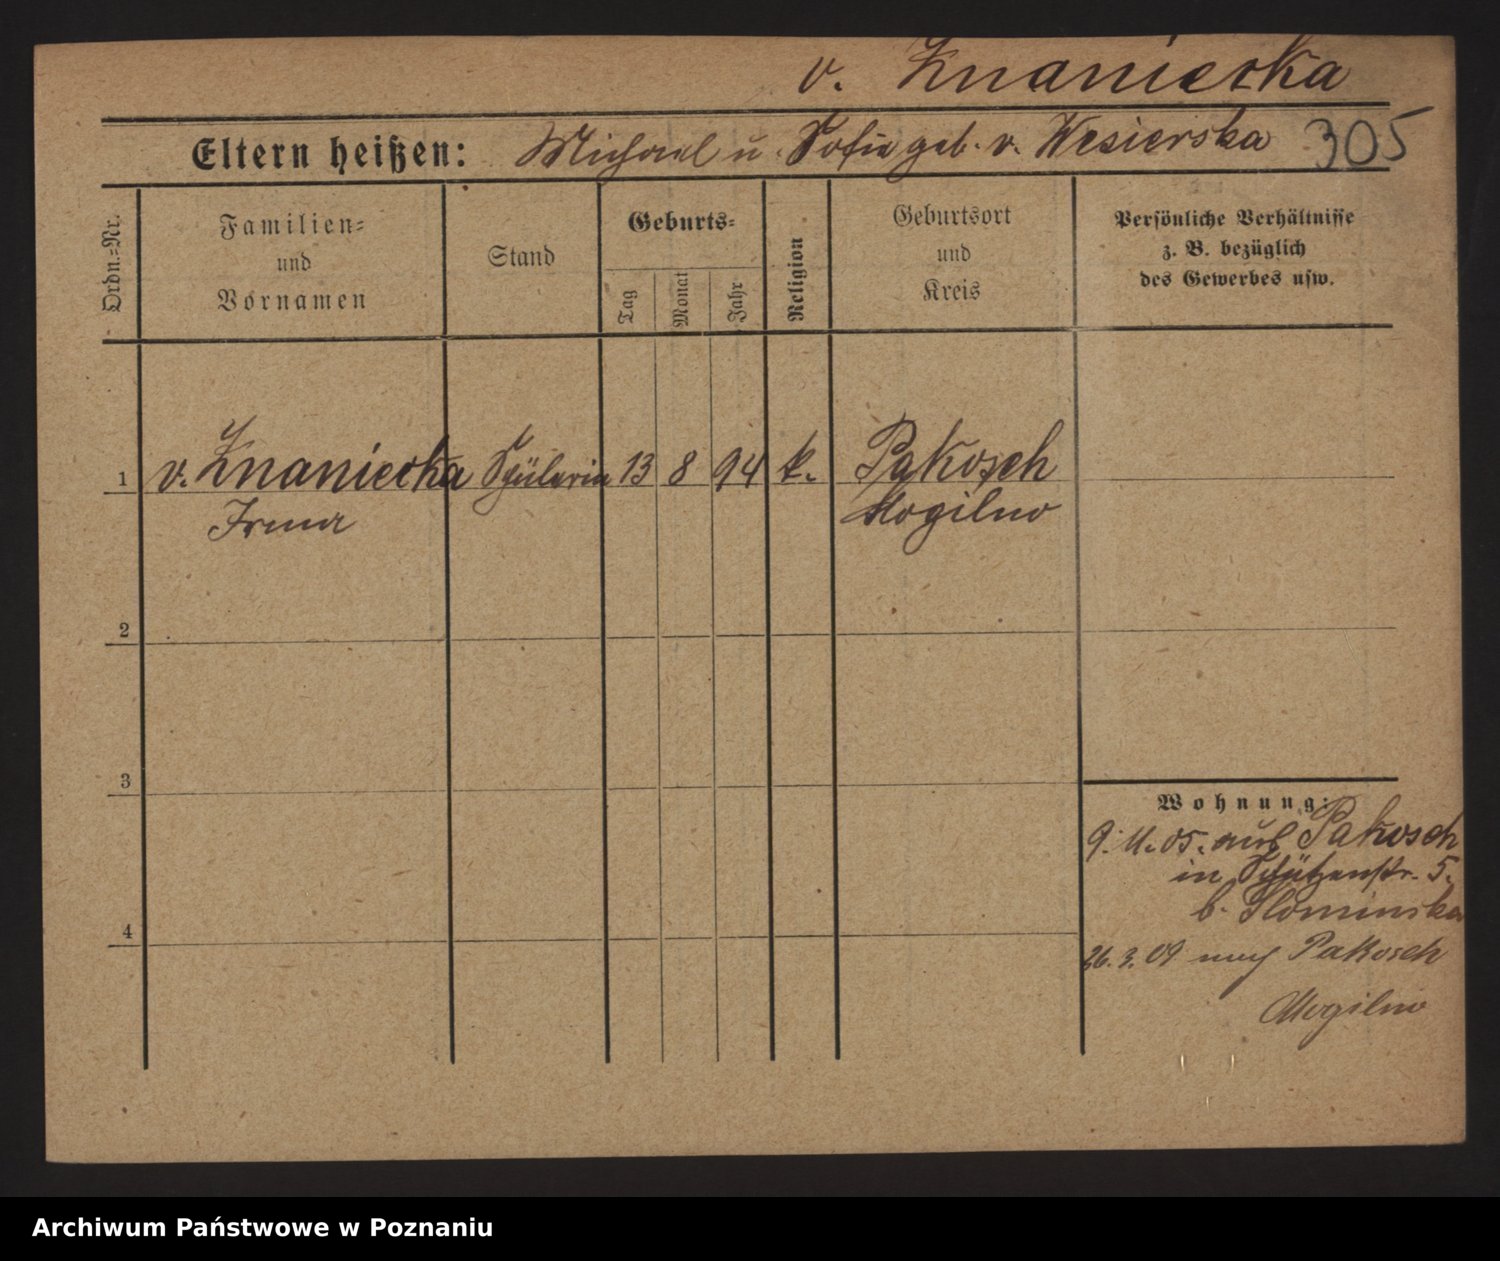 v. Znaniecka
Eltern heißen: Michael u. Sofie geb. v. Wesierska 305
Ordn.=Nr.
Familien=
und
Vornamen
Stand
Geburts=
Tag
Monat
Jahr
Religion
Geburtsort
und
Kreis
Persönliche Verhältnisse
z. B. bezüglich
des Gewerbes usw.
1 v. Znaniecka Schülerin 13 8 94 k. Pakosch
Irma Mogilno
2
3
4
Wohnung:
9. 11. 05. aus Pakosch
in Schützenstr. 5.
b. Slominska
26. 3. 09 nach Pakosch
Mogilno
Archiwum Państwowe w Poznaniu